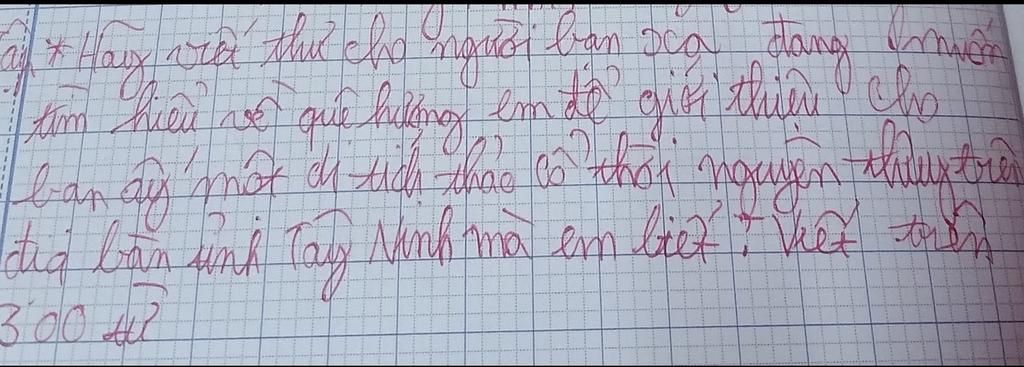 * Hãy viết thư cho người bạn xa đang muốn
tìm hiểu về quê hương em để giới thiệu cho
bạn ấy một di tích khảo cổ thời nguyên thủy trên
địa bàn tỉnh Tây Ninh mà em biết? Viết trên
300 từ?